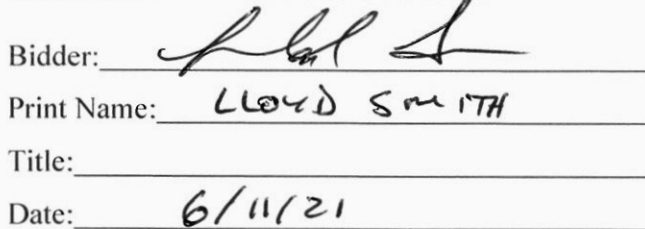 Bidder:
Print Name: LLOYD SMITH
Title:
Date: 6/11/21